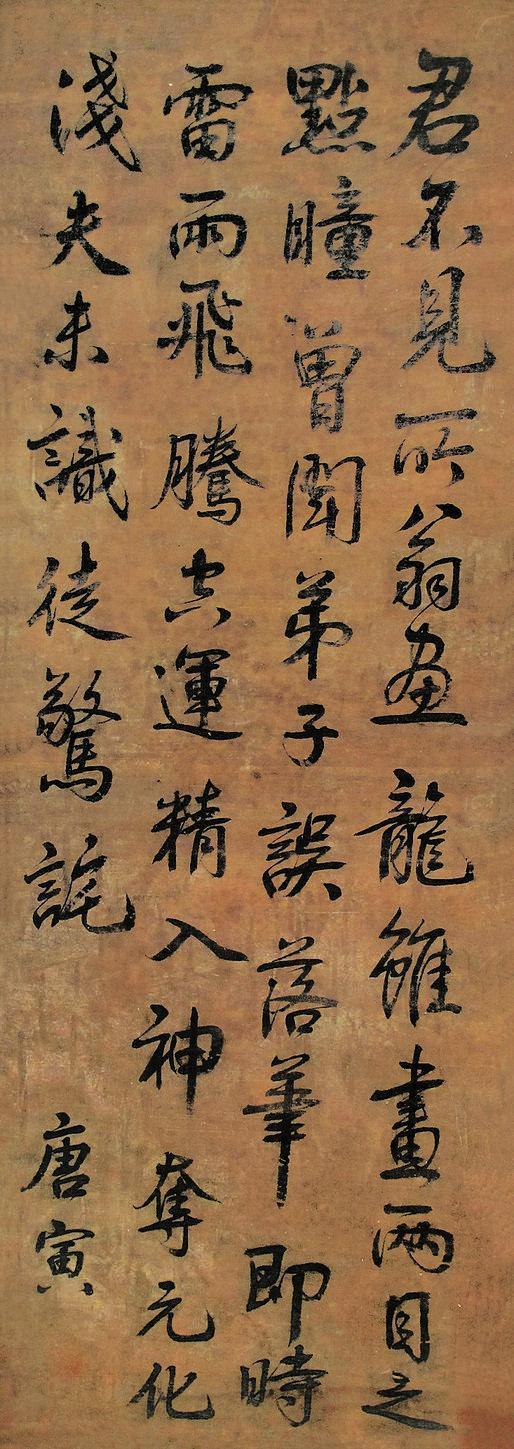 君不見所翁画龍雖畫兩目之
點瞳曾聞弟子誤落筆即時
雷雨飛騰去運精入神奪元化
淺夫未識徒驚詫
唐寅